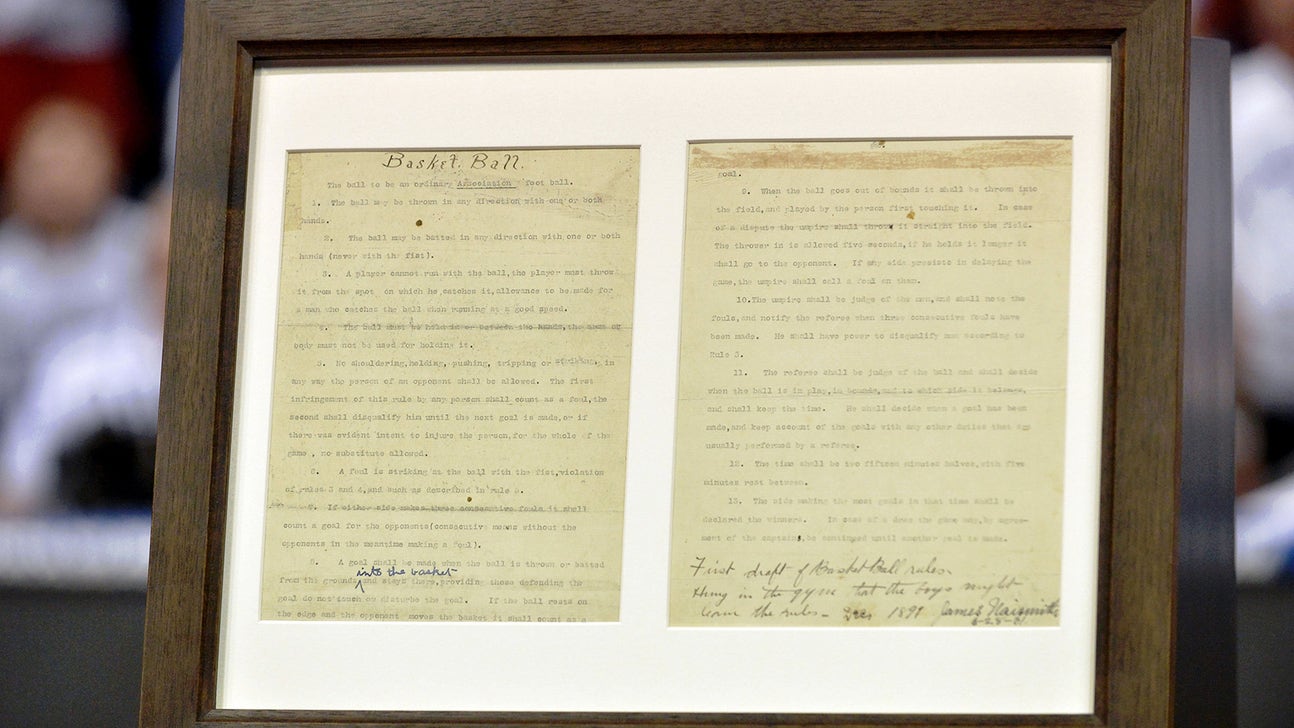 Basket Ball.
The ball to be an ordinary Association foot ball.
1. The ball may be thrown in any direction with one or both
hands.
2. The ball may be batted in any direction with one or both
hands (never with the fist).
3. A player cannot run with the ball, the player must throw
it from the spot on which he catches it, allowance to be made for
a man who catches the ball when running at a good speed.
4. The ball must be held in or between the hands, the arms or
body must not be used for holding it.
5. No shouldering, holding, pushing, tripping or striking, in
any way the person of an opponent shall be allowed. The first
infringement of this rule by any person shall count as a foul, the
second shall disqualify him until the next goal is made, or if
there was evident intent to injure the person, for the whole of the
game, no substitute allowed.
6. A foul is striking at the ball with the fist, violation
of rules 3 and 4, and such as described in rule 5.
7. If either side makes three consecutive fouls, it shall
count a goal for the opponents (consecutive means without the
opponents in the meantime making a foul).
8. A goal shall be made when the ball is thrown or batted
into the basket
from the grounds and stays there, providing those defending the
goal do not touch or disturbe the goal. If the ball rests on
the edge and the opponent moves the basket it shall count as a
goal.
9. When the ball goes out of bounds it shall be thrown into
the field, and played by the person first touching it. In case
of a dispute the umpire shall throw it straight into the field.
The thrower in is allowed five seconds, if he holds it longer it
shall go to the opponent. If any side presists in delaying the
game, the umpire shall call a foul on them.
10. The umpire shall be judge of the men, and shall note the
fouls, and notify the referee when three consecutive fouls have
been made. He shall have power to disqualify men according to
Rule 5.
11. The referee shall be judge of the ball and shall decide
when the ball is in play, in bounds, and to which side it belongs,
and shall keep the time. He shall decide when a goal has been
made, and keep account of the goals with any other duties that are
usually performed by a referee.
12. The time shall be two fifteen minutes halves, with five
minutes rest between.
13. The side making the most goals in that time shall be
declared the winners. In case of a draw the game may, by agree-
ment of the captains, be continued until another goal is made.
First draft of Basket Ball rules.
Hung in the gym that the boys might
learn the rules - Dec 1891 James Naismith
6-28-31